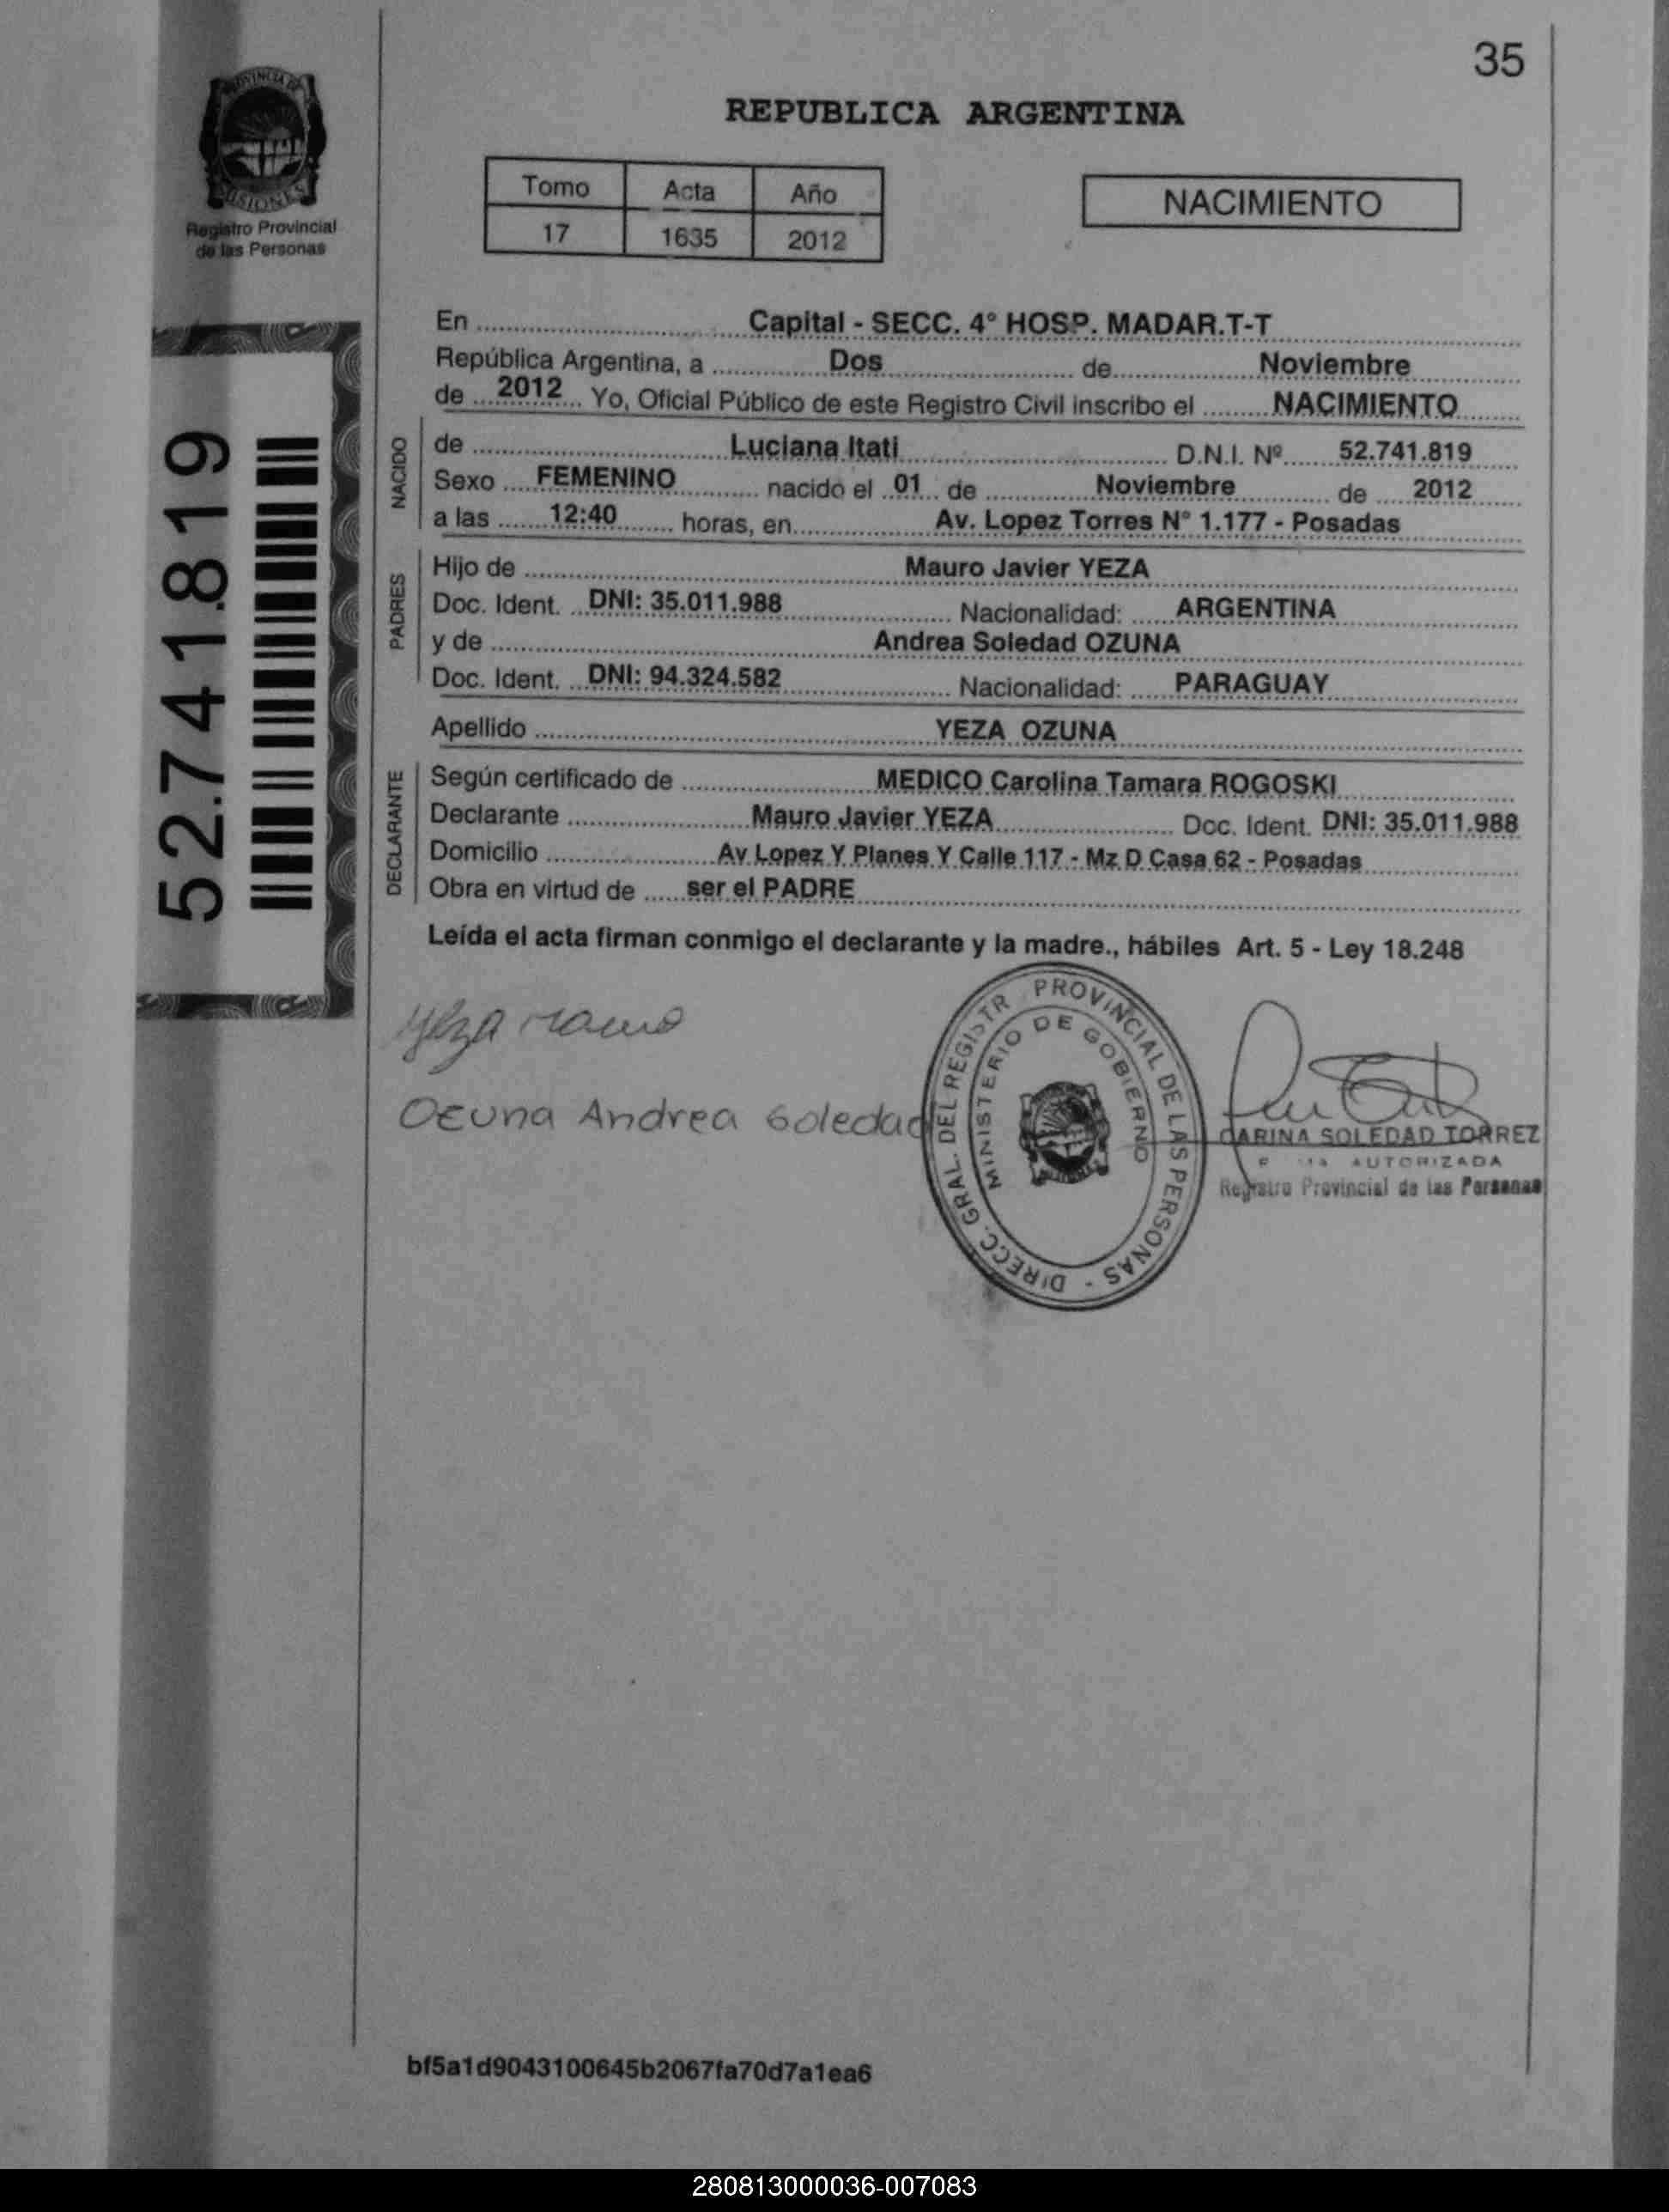 35
PROVINCIA DE
MISIONES
Registro Provincial
de las Personas
REPUBLICA ARGENTINA
Tomo Acta Año
17 1635 2012
NACIMIENTO
52.741.819
En Capital - SECC. 4° HOSP. MADAR.T-T
República Argentina, a Dos de Noviembre
de 2012 Yo, Oficial Público de este Registro Civil inscribo el NACIMIENTO
NACIDO
de Luciana Itati D.N.I. Nº 52.741.819
Sexo FEMENINO nacido el 01 de Noviembre de 2012
a las 12:40 horas, en Av. Lopez Torres N° 1.177 - Posadas
PADRES
Hijo de Mauro Javier YEZA
Doc. Ident. DNI: 35.011.988 Nacionalidad: ARGENTINA
y de Andrea Soledad OZUNA
Doc. Ident. DNI: 94.324.582 Nacionalidad: PARAGUAY
Apellido YEZA OZUNA
DECLARANTE
Según certificado de MEDICO Carolina Tamara ROGOSKI
Declarante Mauro Javier YEZA Doc. Ident. DNI: 35.011.988
Domicilio Av Lopez Y Planes Y Calle 117 - Mz D Casa 62 - Posadas
Obra en virtud de ser el PADRE
Leída el acta firman conmigo el declarante y la madre., hábiles Art. 5 - Ley 18.248
Yeza Mauro
Ozuna Andrea Soledad
DIRECC. GRAL. DEL REGISTR PROVINCIAL DE LAS PERSONAS -
MINISTERIO DE GOBIERNO
CARINA SOLEDAD TORREZ
AUTORIZADA
Registro Provincial de las Personas
bf5a1d9043100645b2067fa70d7a1ea6
280813000036-007083